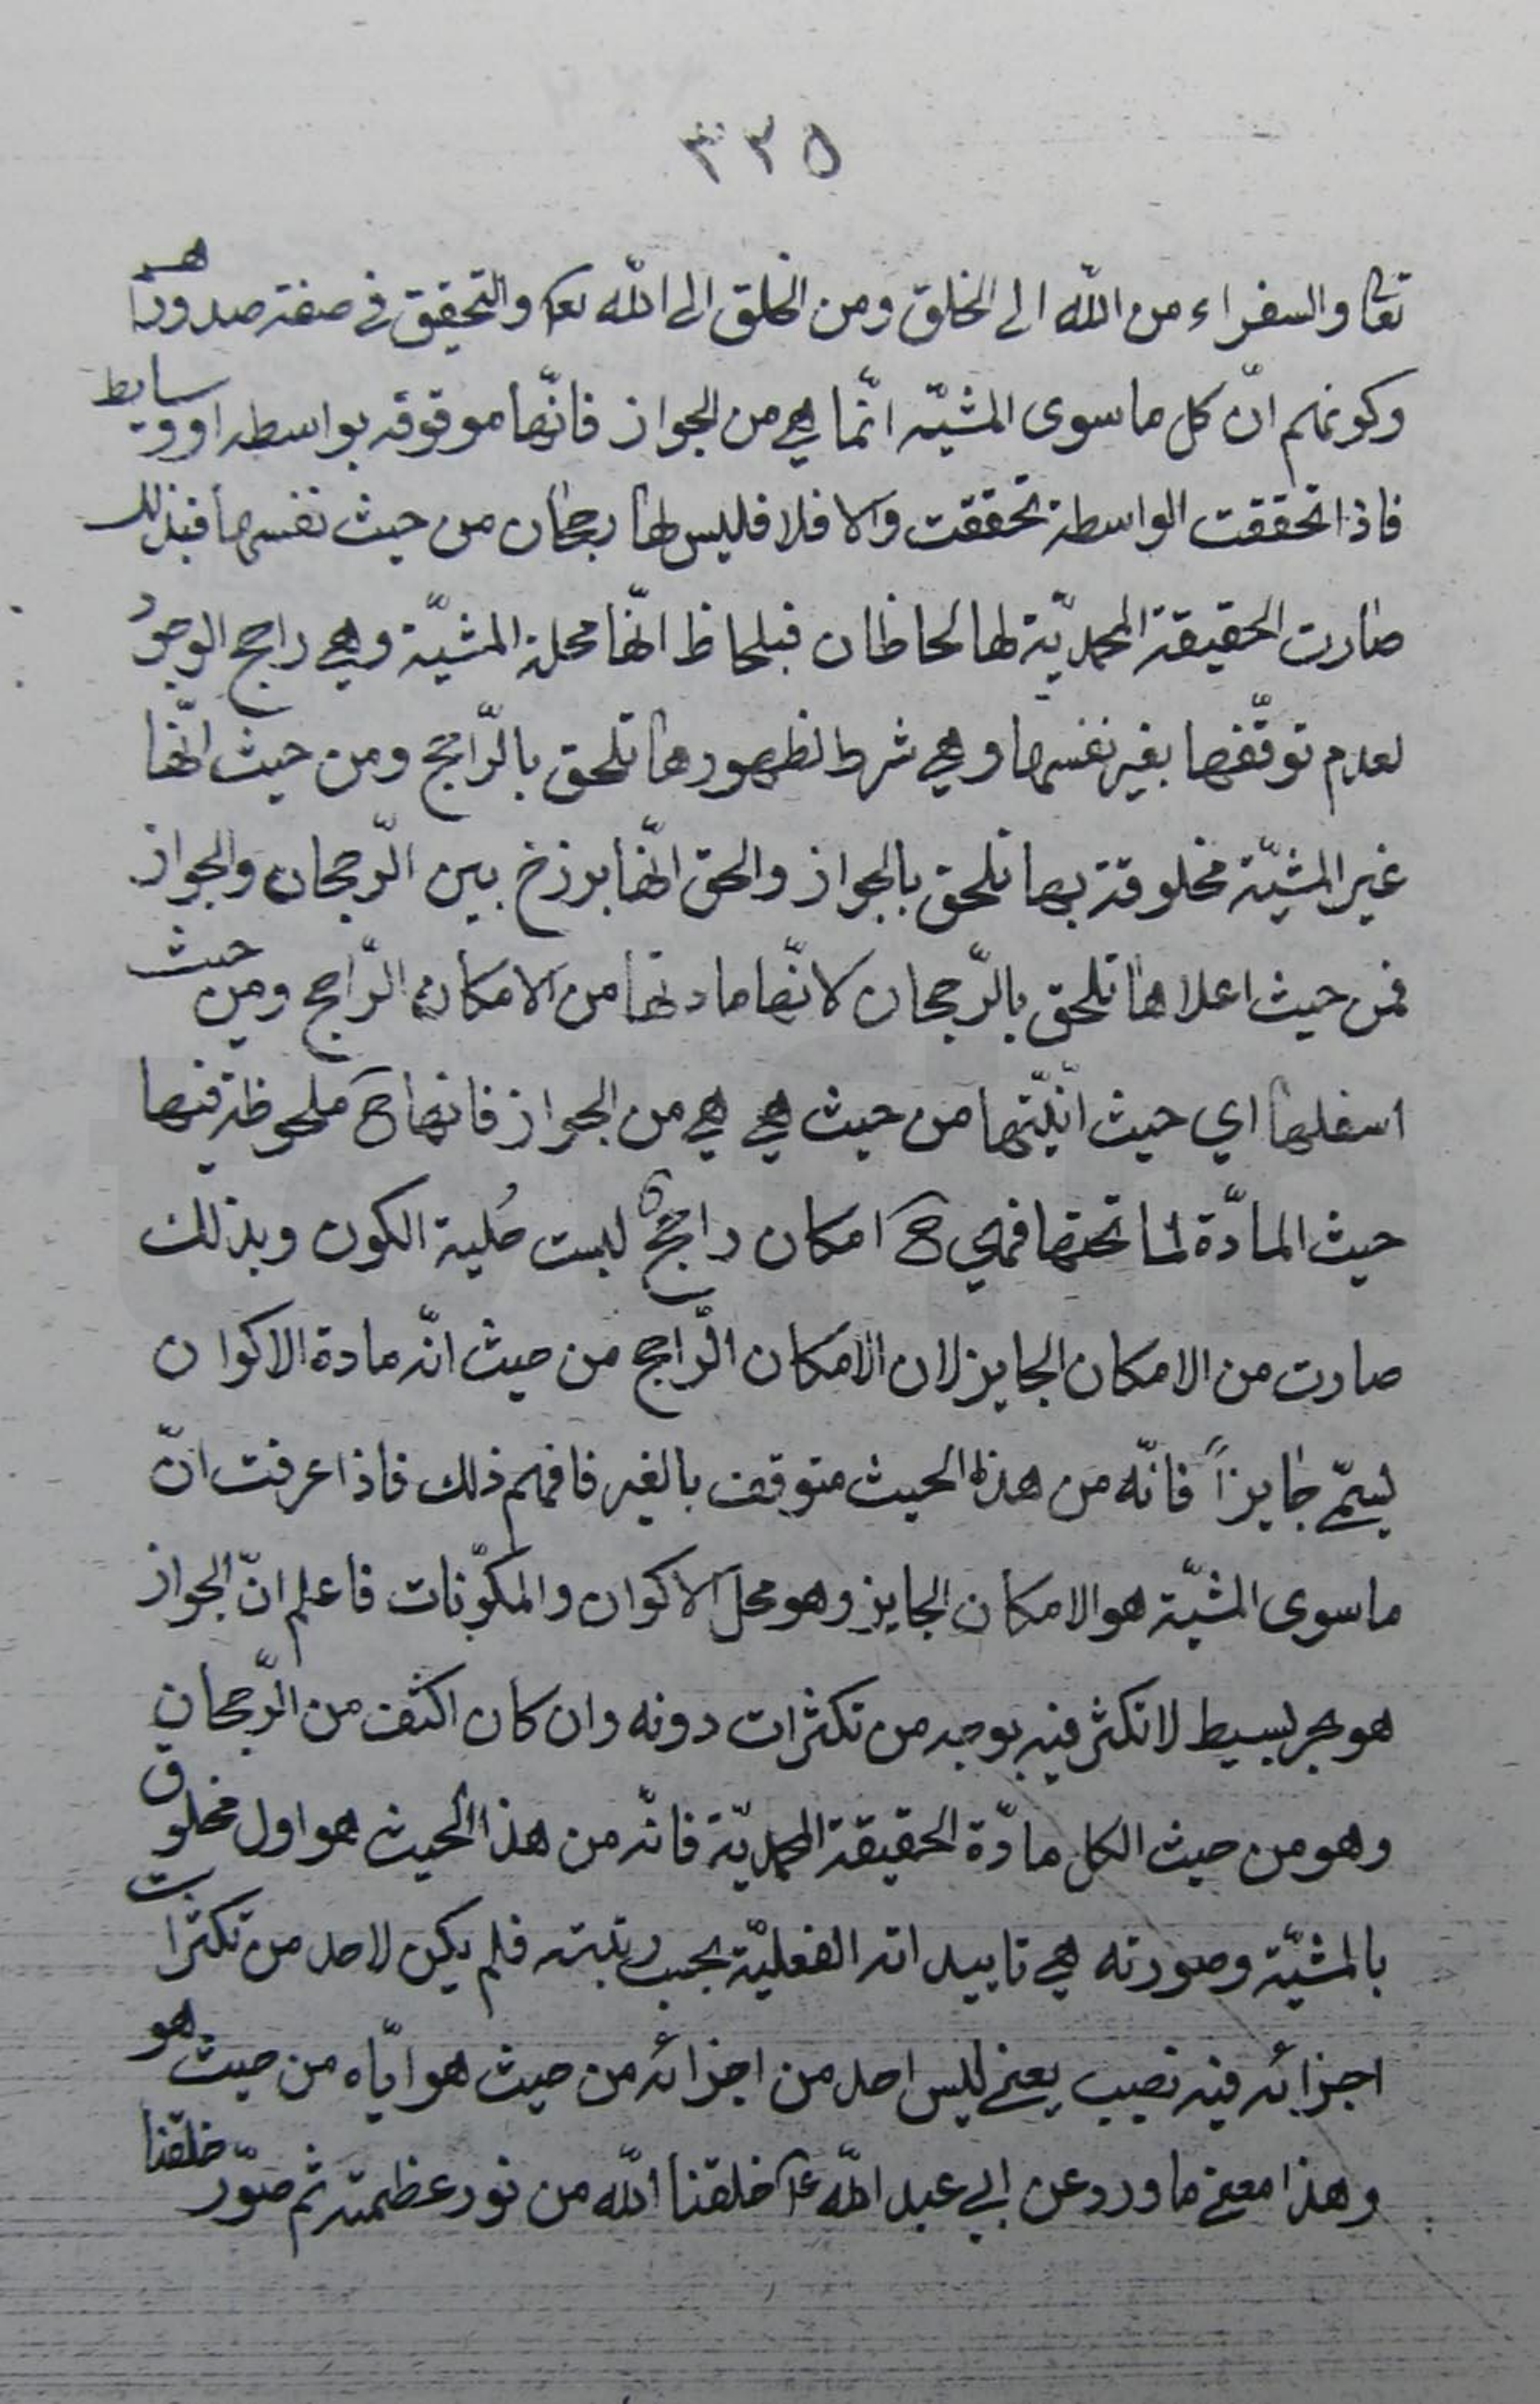 ٣٣٥
تعا والسفراء من اللّه الى الخلق ومن الخلق الى اللّه تعا والتحقيق في صفة صدورهم
وكونهم انّ كل ما سوى المشيّه انّما هي من الجواز فانّها موقوفه بواسطه او وسايط
فاذا تحققت الواسطة تحققت والا فلا فليس لها رجحان من حيث نفسها فبذلك
صارت الحقيقة المحمديّة لها لحاظان فبلحاظ انّها محلة المشيّة وهي راجح الوجود
لعدم توقّفها بغير نفسها وهي شرط لظهورها تلحق بالرّاجح ومن حيث انّها
غير المشيّة مخلوقة بها تلحق بالجواز والحق انّها برزخ بين الرّجحان والجواز
فمن حيث اعلاها تلحق بالرّجحان لانّها مادتها من الامكان الرّاجح ومن حيث
اسفلها اي حيث انّيّتها من حيث هي هي من الجواز فانها ح ملحوظة فيها
حيث المادّة لما تحتها فهي ح امكان راجح ليست حُلية الكون وبذلك
صارت من الامكان الجايز لان الامكان الرّاجح من حيث انّه مادة الاكوان
يسمّى جايزاً فانّه من هذا الحيث متوقف بالغير فافهم ذلك فاذا عرفت انّ
ما سوى المشيّة هو الامكان الجايز وهو محل الاكوان والمكوّنات فاعلم انّ الجواز
هو بحر بسيط لا تكثر فيه بوجه من تكثرات دونه وان كان اكثف من الرّجحان
وهو من حيث الكل مادّة الحقيقة المحمديّة فانّه من هذا الحيث هو اول مخلوق
بالمشيّة وصورته هي تاييداته الفعليّة بحسب رتبته فلم يكن لاحد من تكثرات
اجزائه فيه نصيب يعني ليس احد من اجزائه من حيث هو ايّاه من حيث هو
وهذا معنى ما ورد عن ابي عبد اللّه ع خلقنا اللّه من نور عظمته ثم صوّر خلقنا